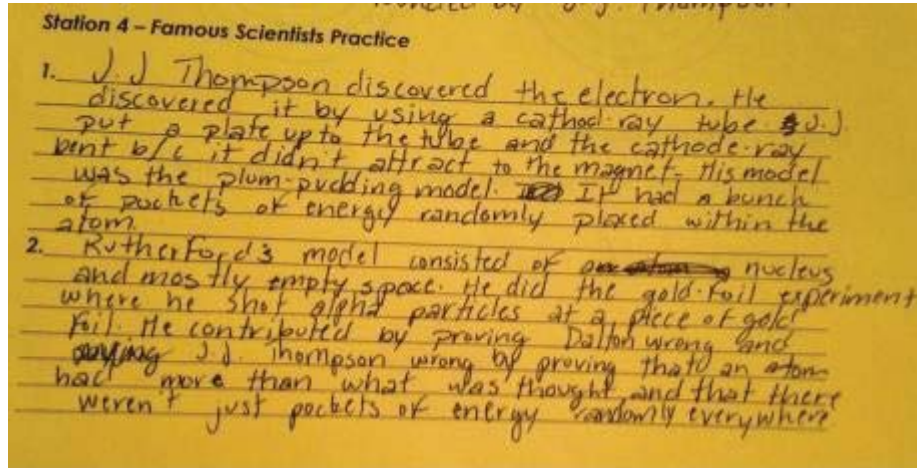 J. J. Thompson
Station 4 – Famous Scientists Practice
1. J.J Thompson discovered the electron. He
discovered it by using a cathod-ray tube. J.J.
put a plate up to the tube and the cathode-ray
bent b/c it didn't attract to the magnet. His model
was the plum-pudding model. It had a bunch
of pockets of energy randomly placed within the
atom.
2. Rutherford's model consisted of nucleus
and mostly empty space. He did the gold-foil experiment
where he shot alpha particles at a piece of gold
foil. He contributed by proving Dalton wrong and
J.J. Thompson wrong by proving that an atom
had more than what was thought, and that there
weren't just pockets of energy randomly everywhere